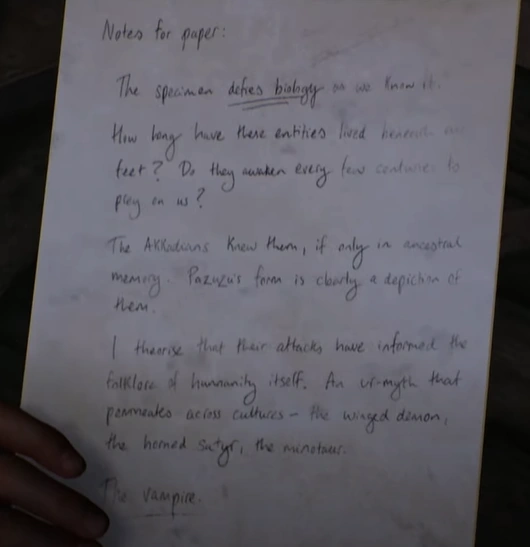 Notes for paper:
The specimen defies biology as we know it.
How long have these entities lived beneath our
feet? Do they awaken every few centuries to
prey on us?
The Akkadians knew them, if only in ancestral
memory. Pazuzu's form is clearly a depiction of
them.
I theorise that their attacks have informed the
folklore of humanity itself. An ur-myth that
permeates across cultures – the winged demon,
the horned satyr, the minotaur.
The vampire.